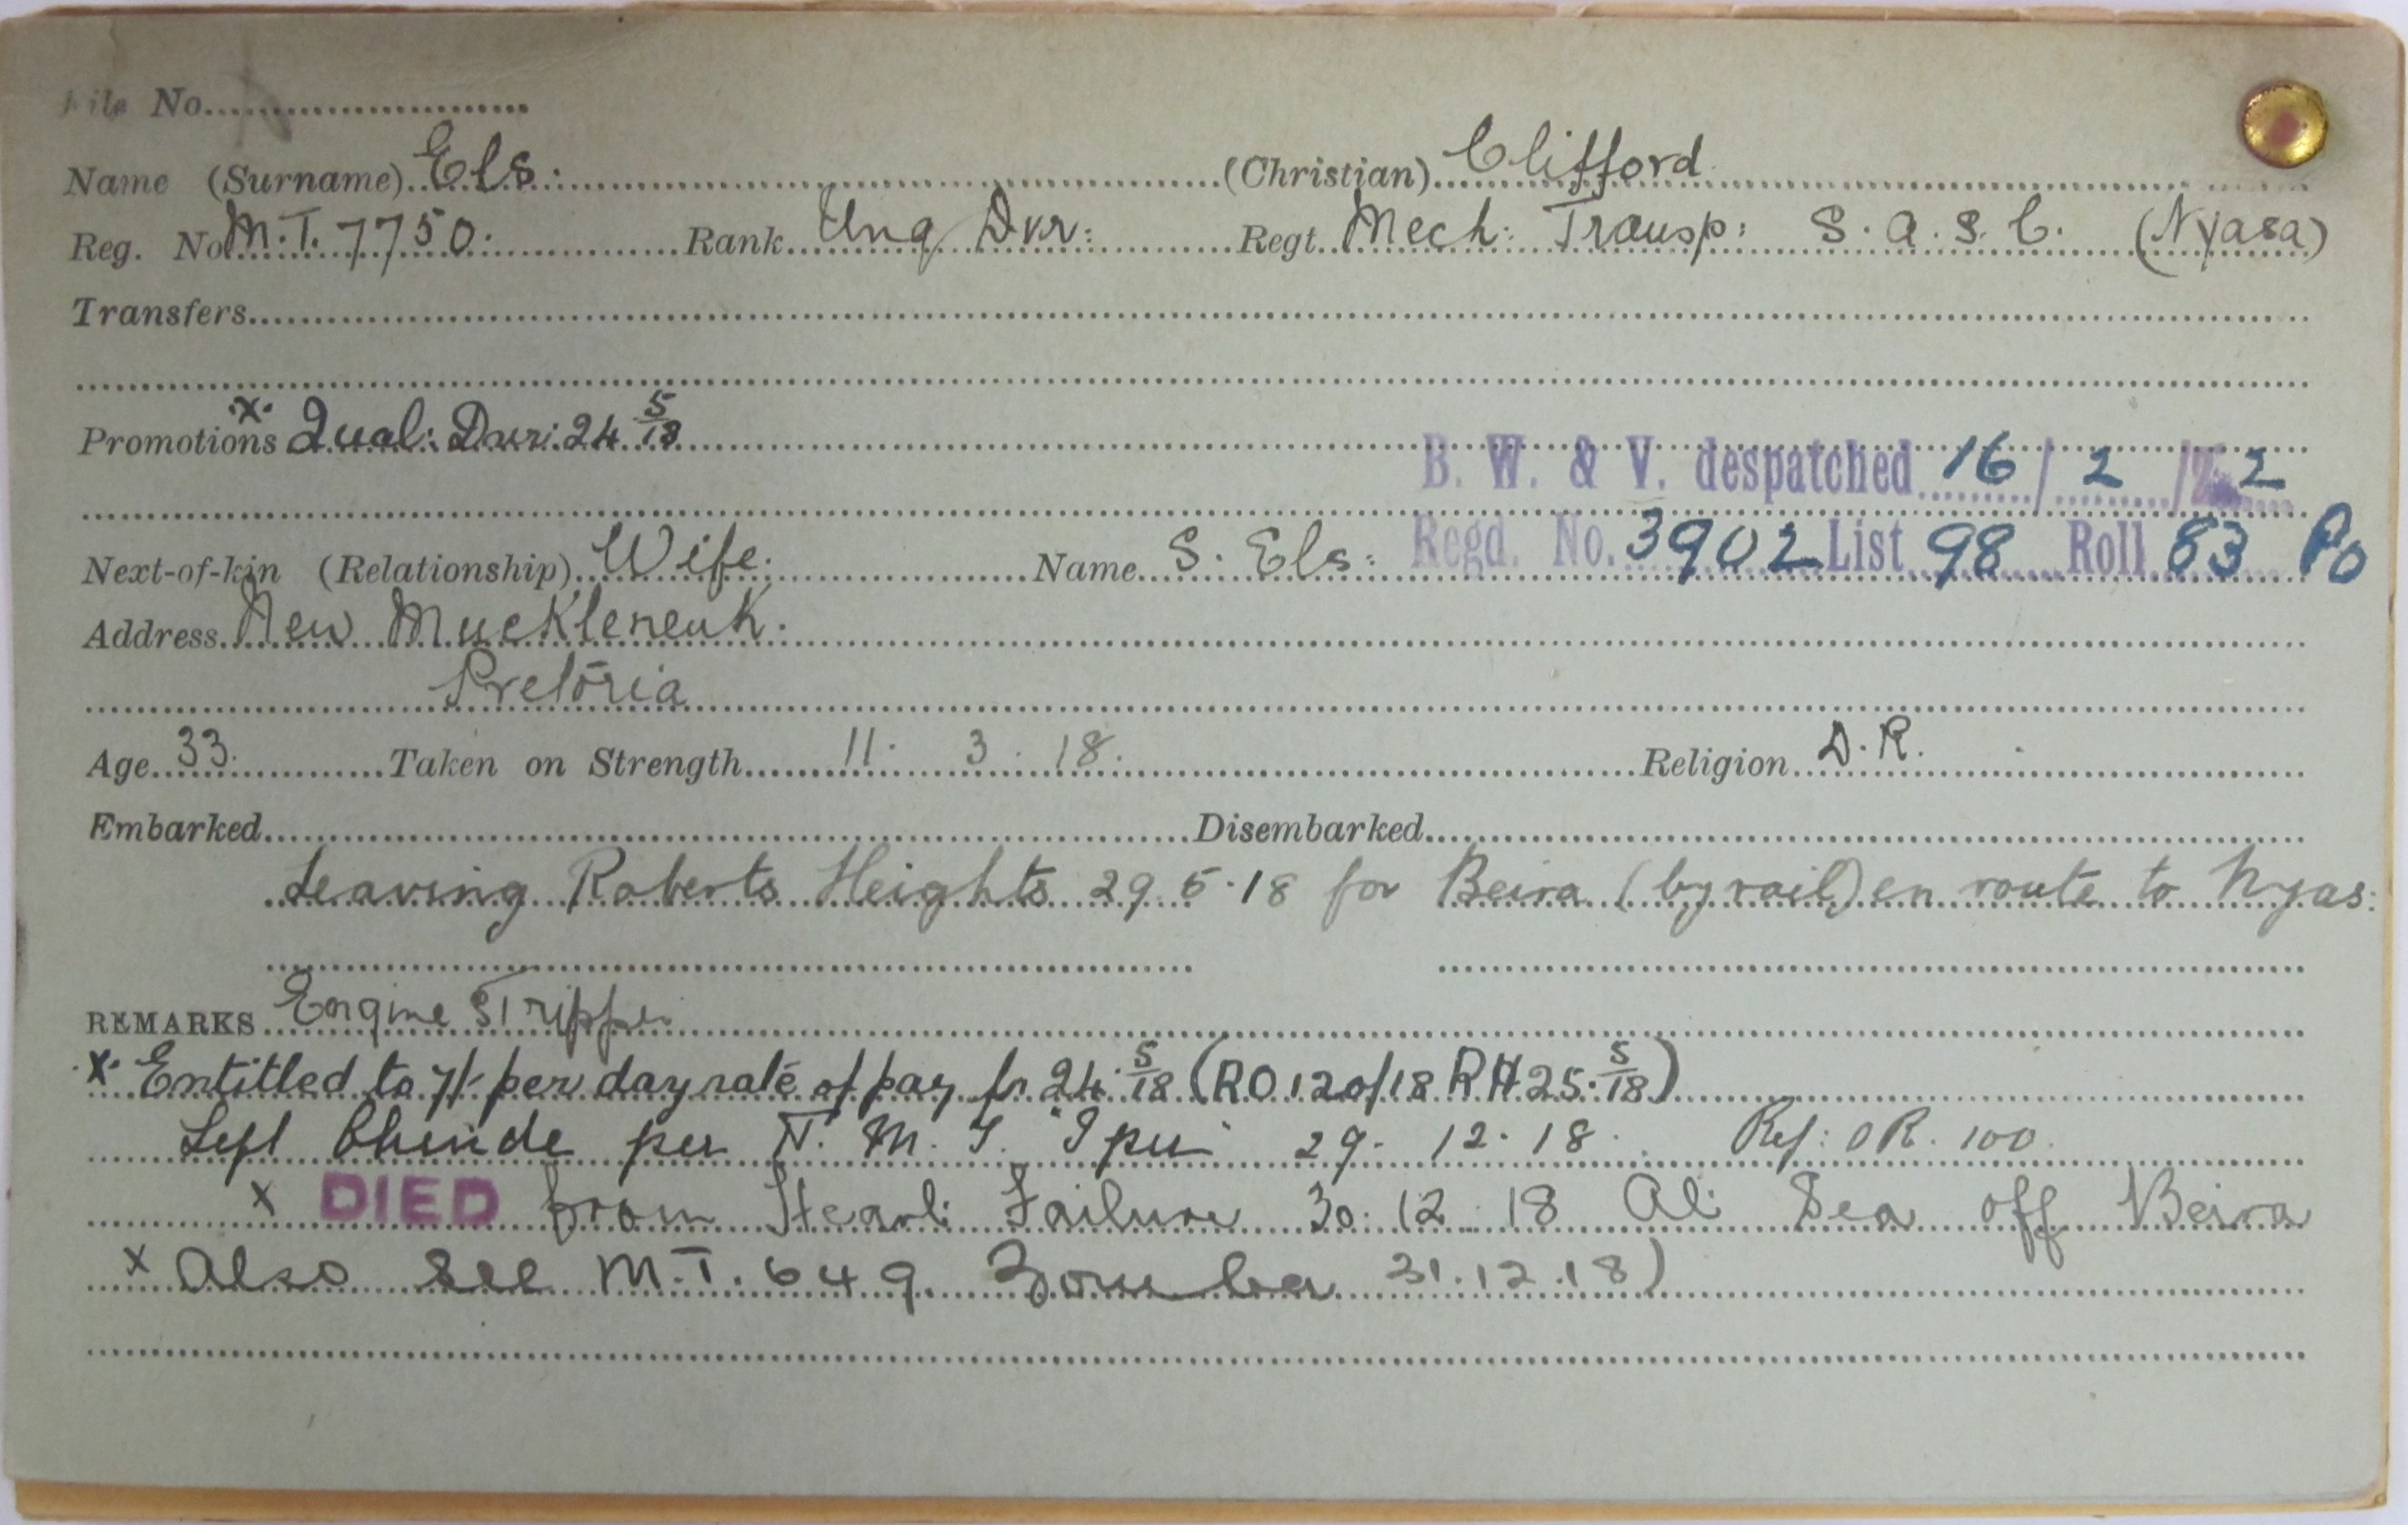 File No.
Name (Surname) Els: (Christian) Clifford
Reg. No M.T. 7750: Rank Unq Dvr: Regt. Mech: Transp: S.A.S.C. (Nyasa)
Transfers
Promotions x Qual: Dvr: 24 5/18
B. W. & V. despatched 16/2/22
Regd. No. 3902 List 98 Roll 83 Po
Next-of-kin (Relationship) Wife: Name S. Els:
Address New Muckleneuk:
Pretoria
Age 33. Taken on Strength 11. 3. 18. Religion D.R.
Embarked Disembarked
Leaving Roberts Heights 29.5.18 for Beira (by rail) en route to Nyas:
REMARKS Engine Stripper
x Entitled to 7/- per day rate of pay fr 24 5/18 (RO 120/18 RH 25. 5/18)
Left Chinde per 29. 12. 18. Ref: OR. 100.
x DIED from Heart Failure 30. 12. 18 At Sea off Beira
x Also see M.T. 649. Zomba 31.12.18)